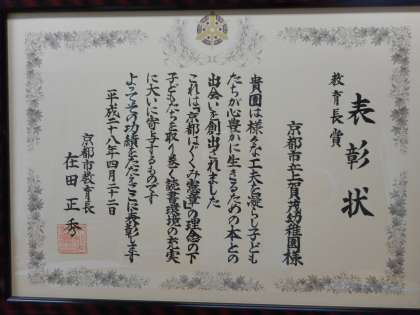 表彰状
教育長賞
京都市立上賀茂幼稚園様
貴園は様々な工夫を凝らし子ども
たちが心豊かに生きるための本との
出会いを創出されました
これは「京都はぐくみ憲章」の理念の下
子どもたちを取り巻く読書環境の充実
に大いに寄与するものです
よってその功績をたたえここに表彰します
平成二十八年四月二十二日
京都市教育長
在田正秀